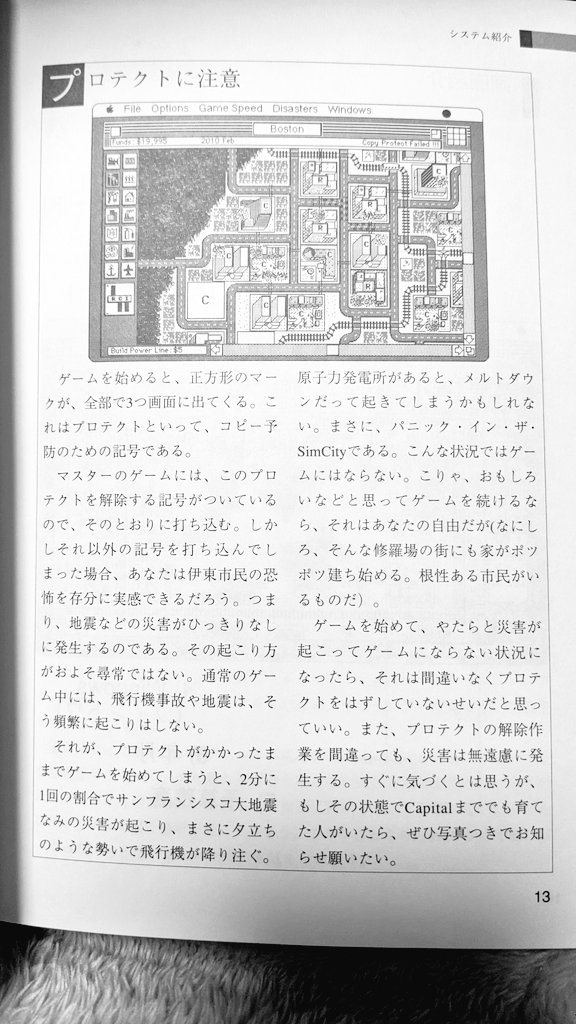 システム紹介
プロテクトに注意
File Options Game Speed Disasters Windows
Boston
Funds: $19,995 2010 Feb Copy Protect Failed !!!
R
R
C
R
C
C
R
C
C
R C I
C
Build Power Line: $5
ゲームを始めると、正方形のマー
クが、全部で3つ画面に出てくる。こ
れはプロテクトといって、コピー予
防のための記号である。
マスターのゲームには、このプロ
テクトを解除する記号がついている
ので、そのとおりに打ち込む。しか
しそれ以外の記号を打ち込んでし
まった場合、あなたは伊東市民の恐
怖を存分に実感できるだろう。つま
り、地震などの災害がひっきりなし
に発生するのである。その起こり方
がおよそ尋常ではない。通常のゲー
ム中には、飛行機事故や地震は、そ
う頻繁に起こりはしない。
それが、プロテクトがかかったま
までゲームを始めてしまうと、2分に
1回の割合でサンフランシスコ大地震
なみの災害が起こり、まさに夕立ち
のような勢いで飛行機が降り注ぐ。
原子力発電所があると、メルトダウ
ンだって起きてしまうかもしれな
い。まさに、パニック・イン・ザ・
SimCityである。こんな状況ではゲー
ムにはならない。こりゃ、おもしろ
いなどと思ってゲームを続けるな
ら、それはあなたの自由だが(なにし
ろ、そんな修羅場の街にも家がポツ
ポツ建ち始める。根性ある市民がい
るものだ）。
ゲームを始めて、やたらと災害が
起こってゲームにならない状況に
なったら、それは間違いなくプロテ
クトをはずしていないせいだと思っ
ていい。また、プロテクトの解除作
業を間違っても、災害は無遠慮に発
生する。すぐに気づくとは思うが、
もしその状態でCapitalまででも育て
た人がいたら、ぜひ写真つきでお知
らせ願いたい。
13